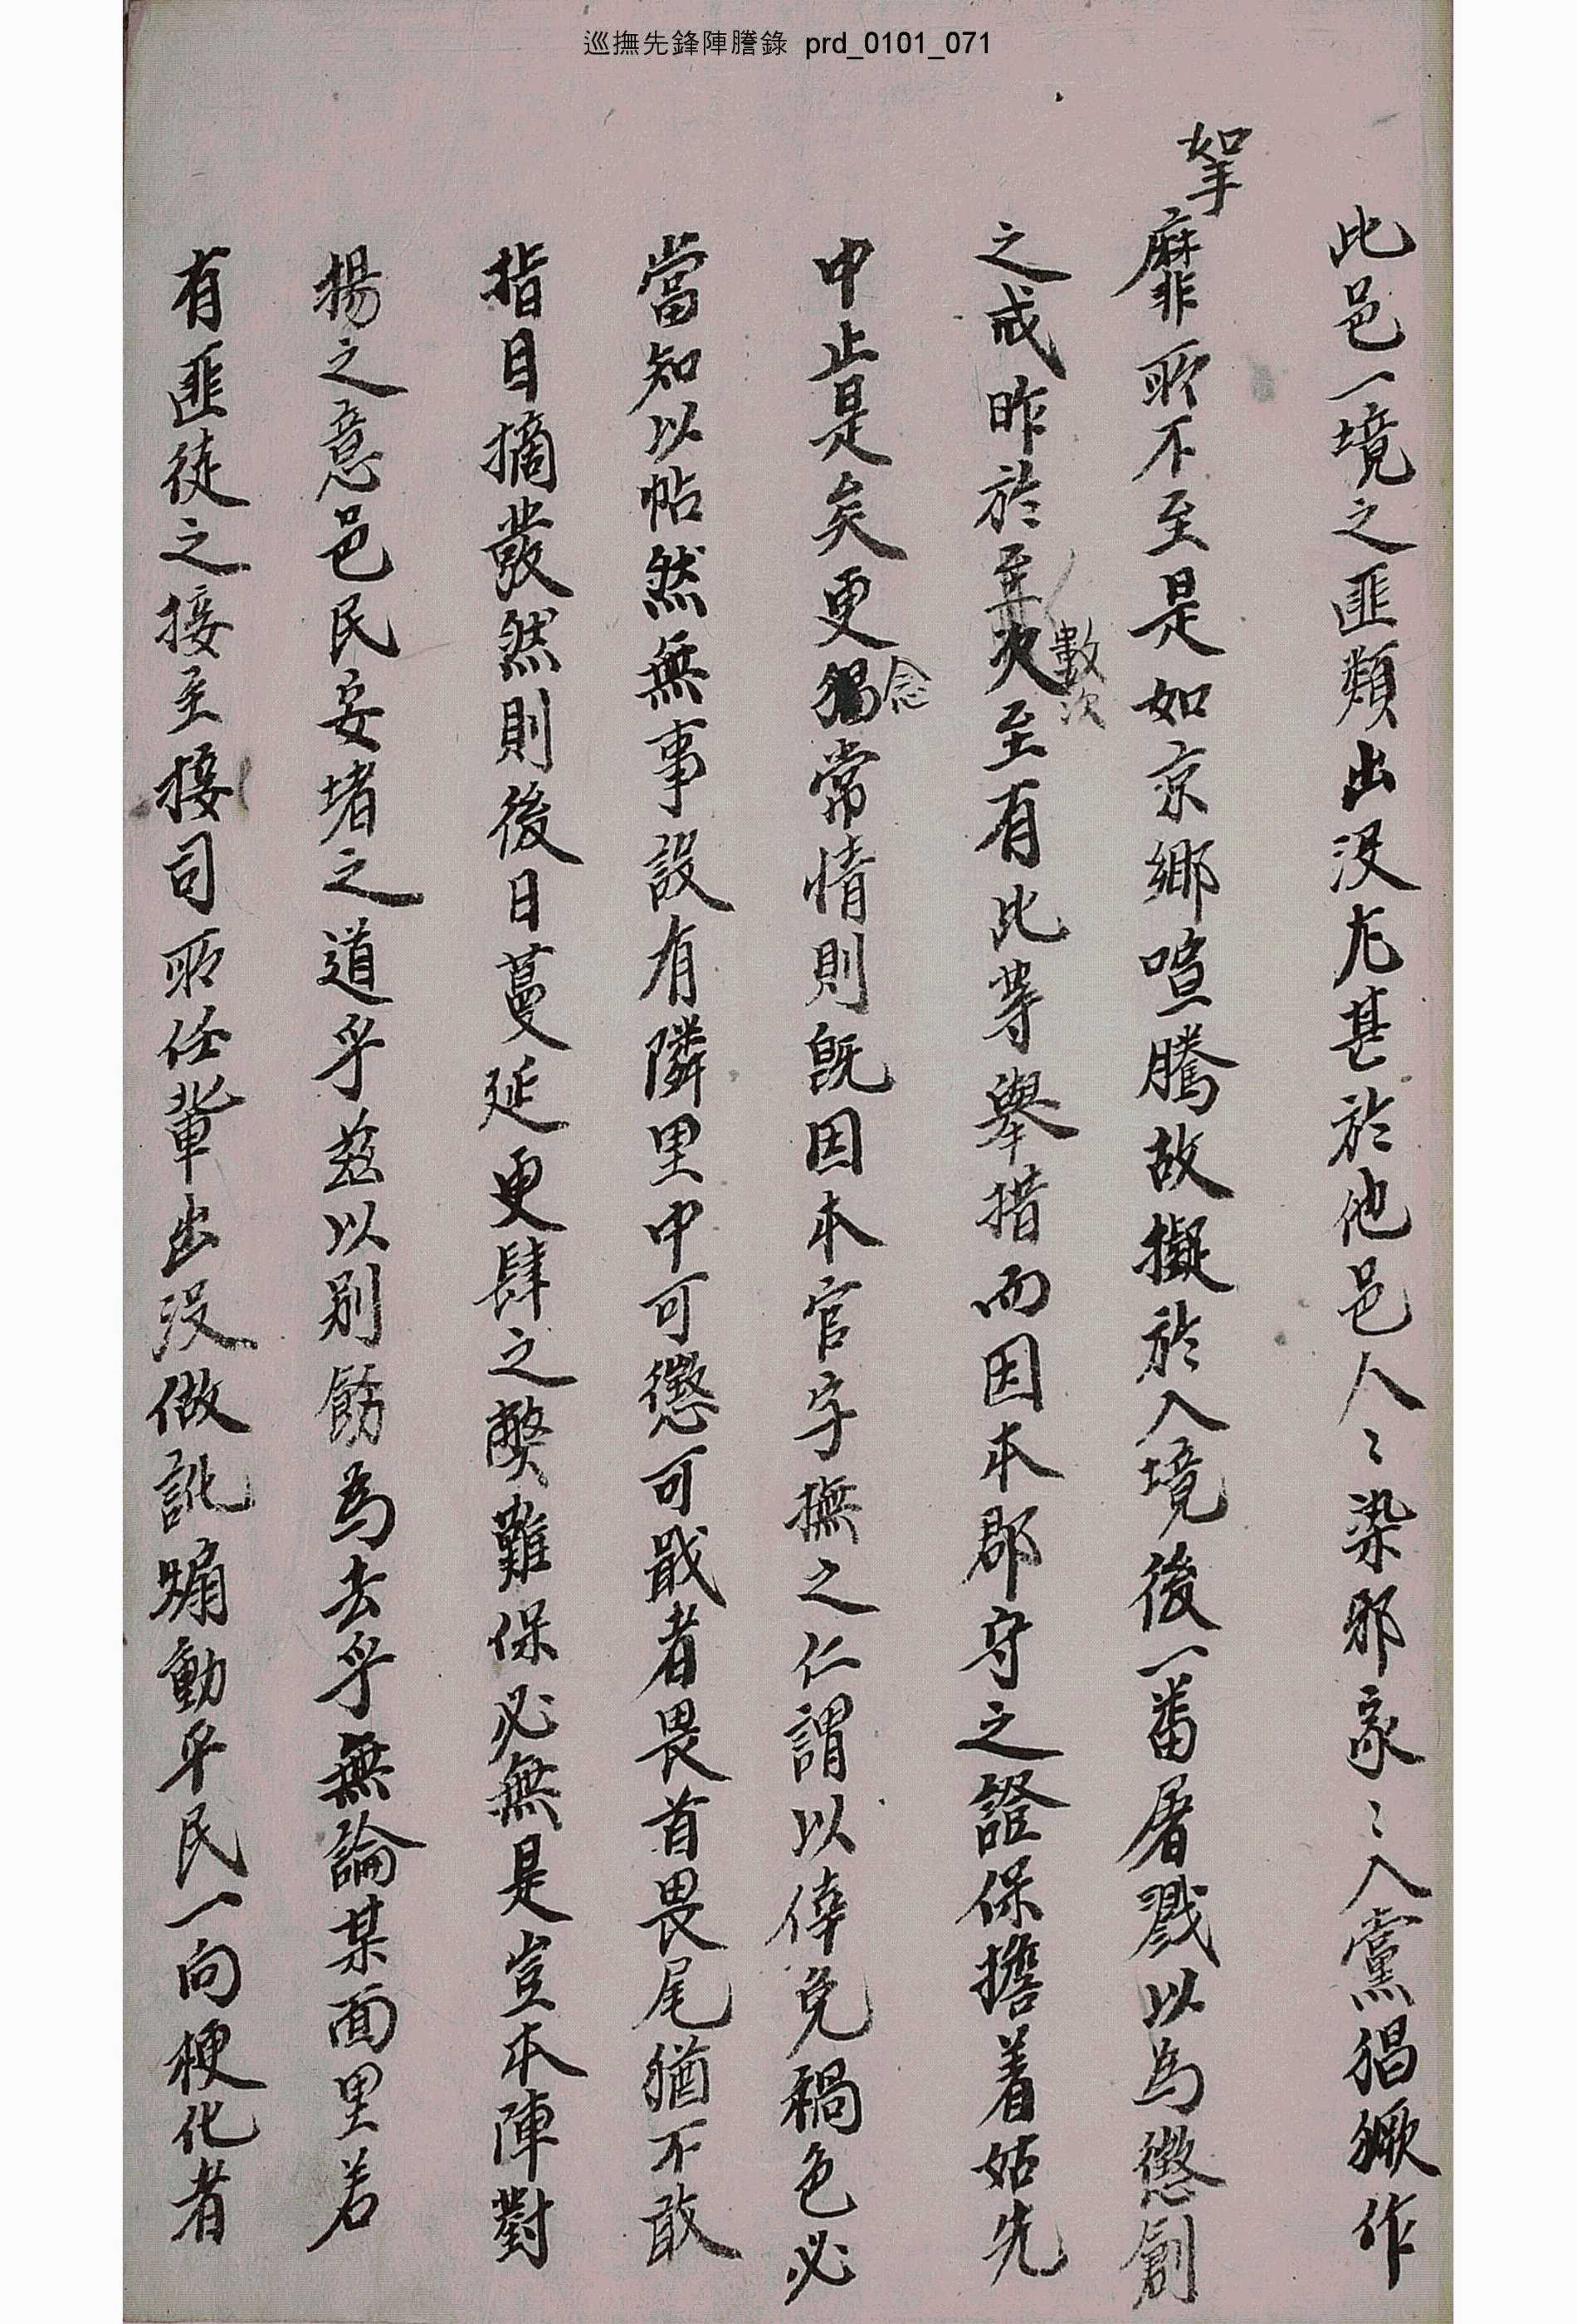 巡撫先鋒陣謄錄 prd_0101_071
此邑一境之匪類出沒尤甚於他邑人〻染邪家〻入黨猖獗作
挐
靡所不至是如京鄕喧騰故擬於入境後一番屠戮以爲懲創
之戒昨於至次至有此等擧措而因本郡守之證保擔着姑先
數次
中止是矣更獨常情則旣因本官字撫之仁謂以倖免禍色必
念
當知以帖然無事設有隣里中可懲可戢者畏首畏尾猶不敢
指目摘發然則後日蔓延更肆之弊難保必無是豈本陣對
揚之意邑民妥堵之道乎玆以別飭爲去乎無論某面里若
有匪徒之接主接司所任輩出沒做訛煽動平民一向梗化者